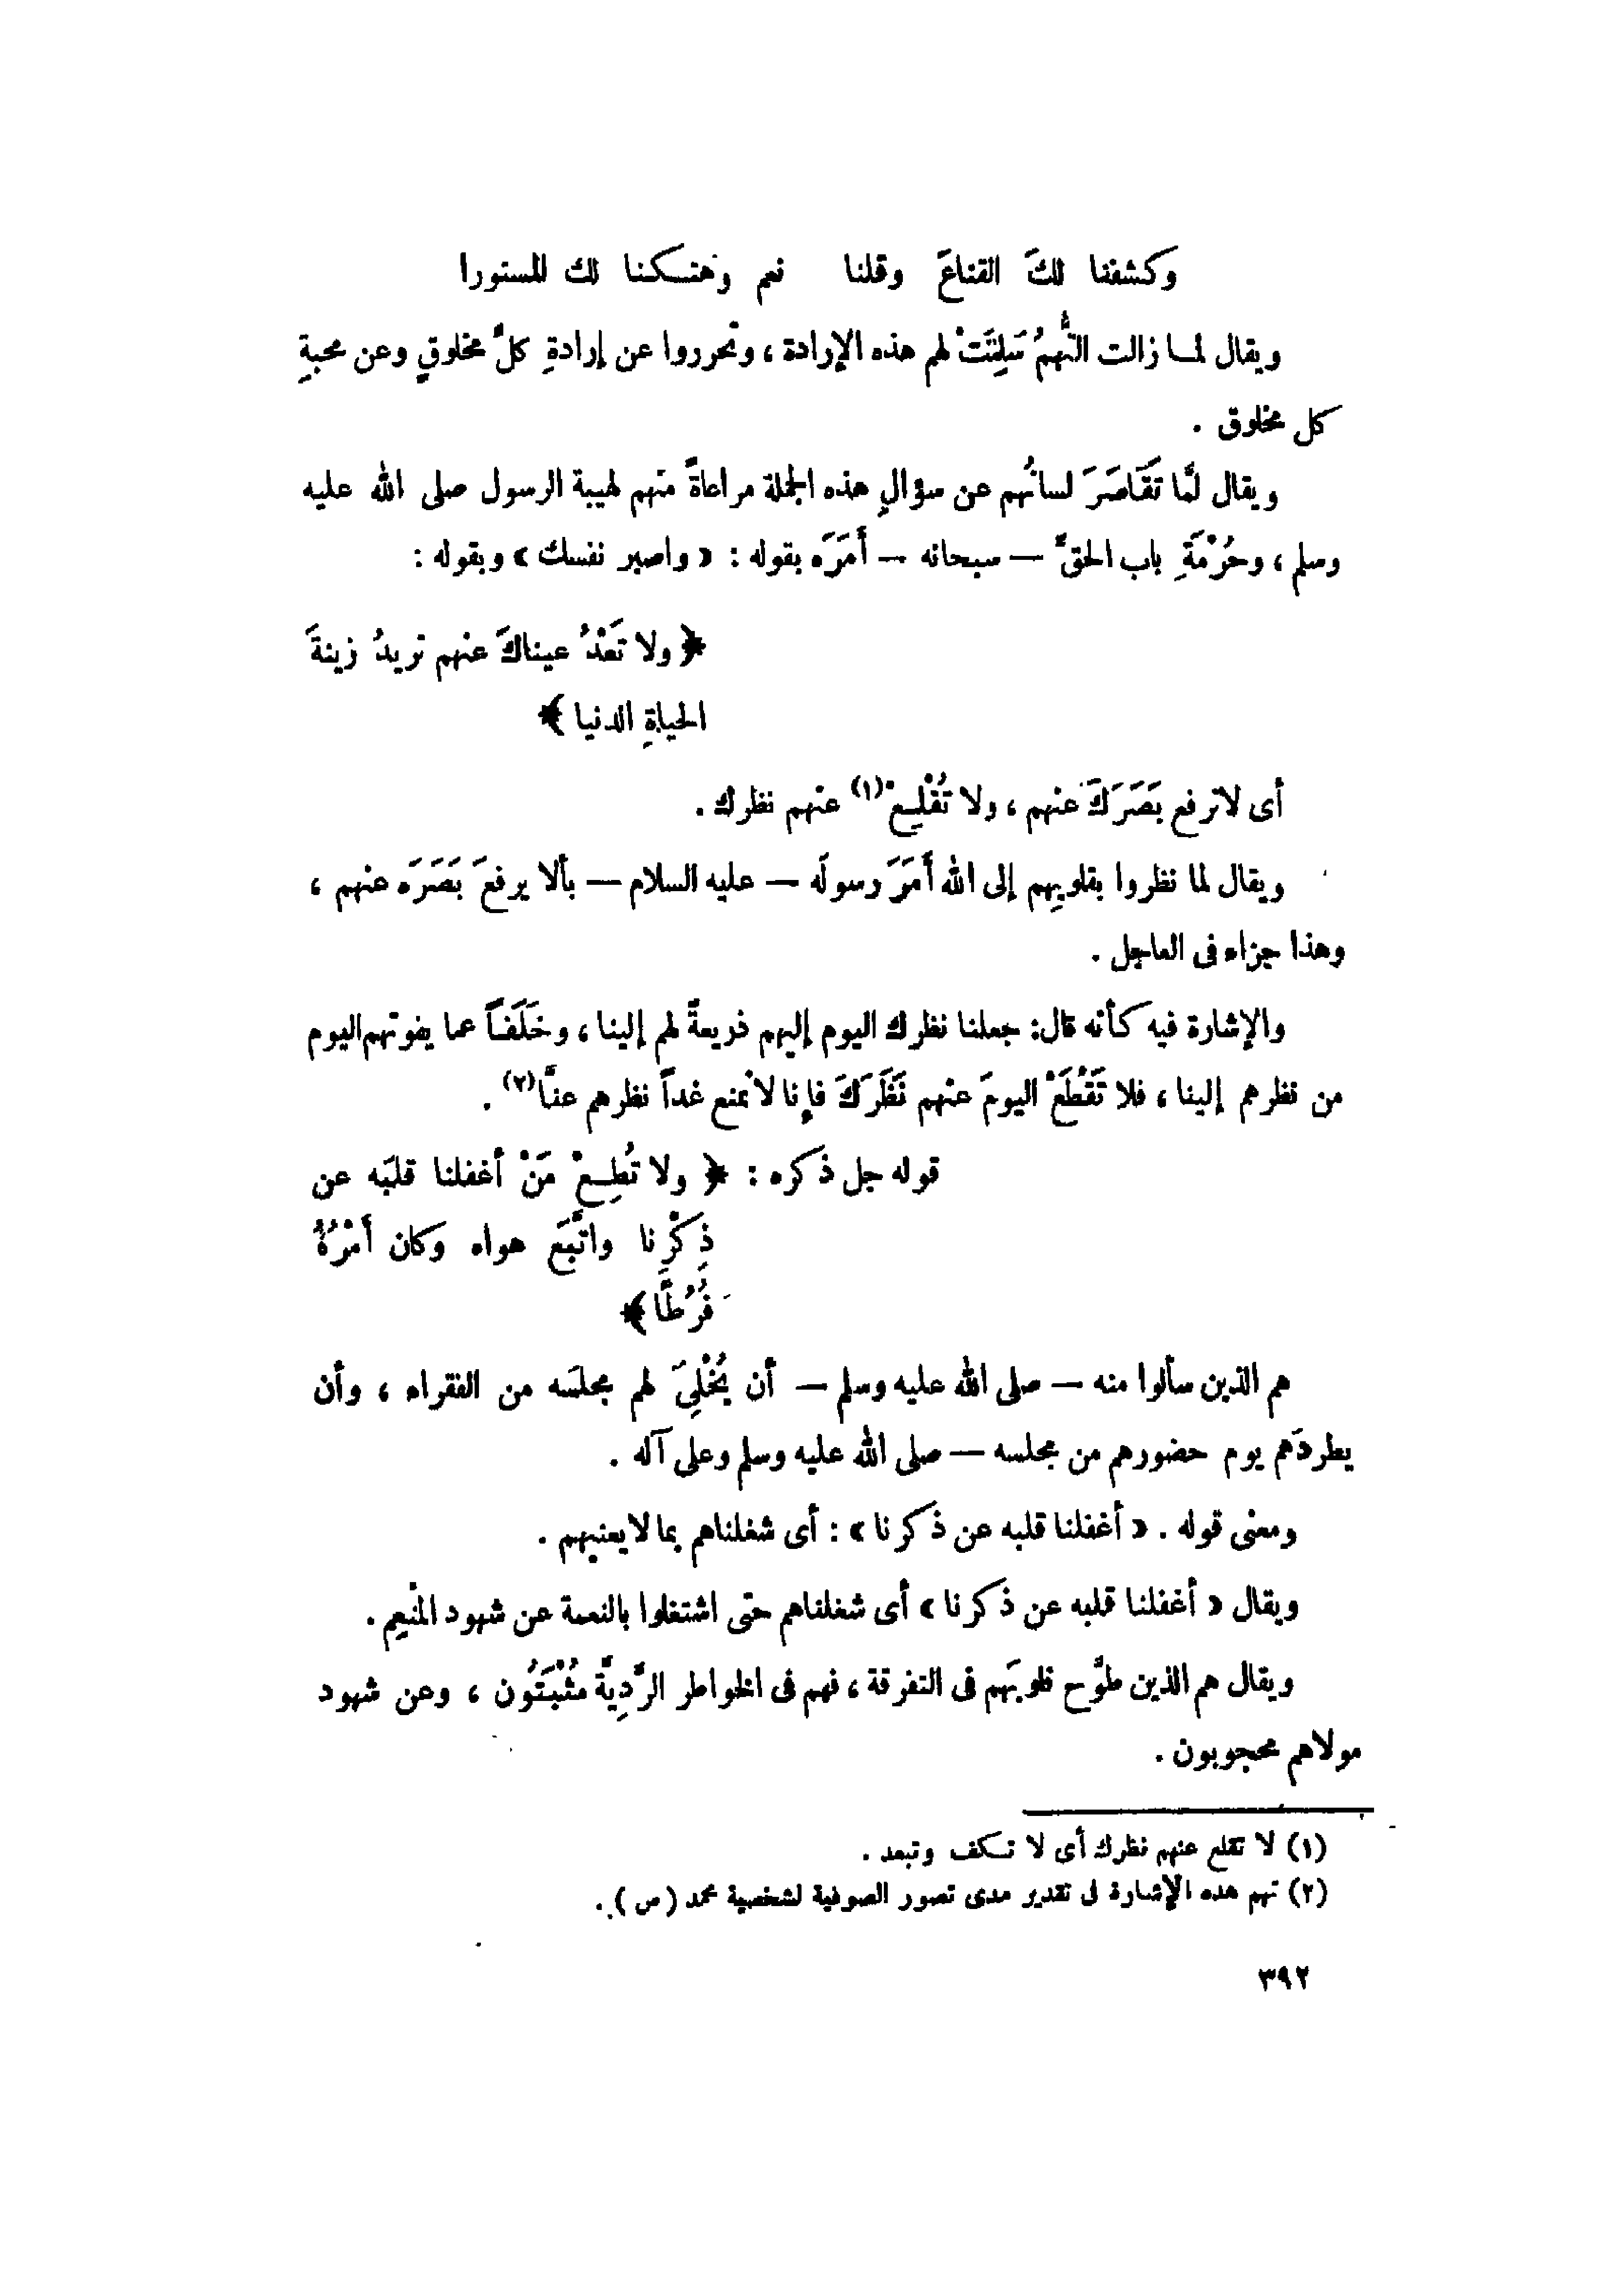 وكشفنا لكَ القناعَ وقلنا نعم وهتكنا لك المستورا
ويقال لما زالت التُّهمُ سَلِمَتْ لهم هذه الإرادة ، وتحرروا عن إرادةِ كلِّ مخلوقٍ وعن محبةِ
كل مخلوق .
ويقال لمَّا تَقَاصَرَ لسانُهم عن سؤالِ هذه الجملة مراعاةً منهم لهيبة الرسول صلى الله عليه
وسلم ، وحُرْمَةِ باب الحقِّ — سبحانه — أَمَرَه بقوله : « واصبر نفسك » وبقوله :
﴿ ولا تَعْدُ عيناكَ عنهم تريدُ زينةَ
الحياةِ الدنيا ﴾
أى لا ترفع بَصَرَكَ عنهم ، ولا تُقْلِعْ(١) عنهم نظرك .
ويقال لما نظروا بقلوبِهم إلى الله أَمَرَ رسولَه — عليه السلام — بألا يرفعَ بَصَرَه عنهم ،
وهذا جزاء فى العاجل .
والإشارة فيه كأنه قال: جعلنا نظرك اليوم إليهم ذريعةً لهم إلينا ، وخَلَفَاً عما يفوتهم اليوم
من نظرهم إلينا ، فلا تَقْطَعْ اليومَ عنهم نَظَرَكَ فإنا لا نمنع غداً نظرهم عنَّا(٢) .
قوله جل ذكره : ﴿ ولا تُطِعْ مَنْ أغفلنا قلبَه عن
ذِكْرِنا واتَّبَعَ هواه وكان أَمْرُهُ
فُرُطًا ﴾
هم الذين سألوا منه — صلى الله عليه وسلم — أن يُخْلِىَ لهم مجلسَه من الفقراء ، وأن
يطردَهم يوم حضورهم من مجلسه — صلى الله عليه وسلم وعلى آله .
ومعنى قوله . « أغفلنا قلبه عن ذكرنا » : أى شغلناهم بما لا يعنيهم .
ويقال « أغفلنا قلبه عن ذكرنا » أى شغلناهم حتى اشتغلوا بالنعمة عن شهود المُنْعِم .
ويقال هم الذين طوَّح قلوبَهم فى التفرقة ، فهم فى الخواطر الرَّدِيَّة مُثْبَتُون ، وعن شهود
مولاهم محجوبون .
(١) لا تقلع عنهم نظرك أى لا تكف وتبعد .
(٢) تهم هذه الإشارة فى تقدير مدى تصور الصوفية لشخصية محمد (ص) .
٣٩٢